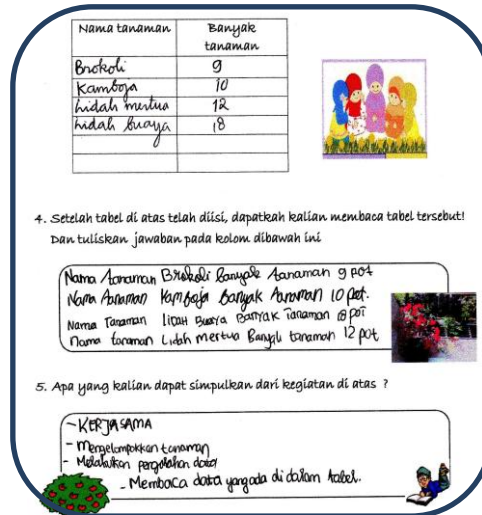 Nama tanaman Banyak tanaman
Brokoli 9
Kamboja 10
Lidah mertua 12
Lidah buaya 18
4. Setelah tabel di atas telah diisi, dapatkah kalian membaca tabel tersebut!
Dan tuliskan jawaban pada kolom dibawah ini
Nama tanaman Brokoli banyak tanaman 9 pot
Nama tanaman Kamboja banyak tanaman 10 pot.
Nama Tanaman lidah Buaya Banyak Tanaman 18 pot
Nama tanaman Lidah mertua Banyak tanaman 12 pot
5. Apa yang kalian dapat simpulkan dari kegiatan di atas ?
- KERJASAMA
- Mengelompokkan tanaman
- Melakukan pengolahan data
- Membaca data yang ada di dalam tabel.